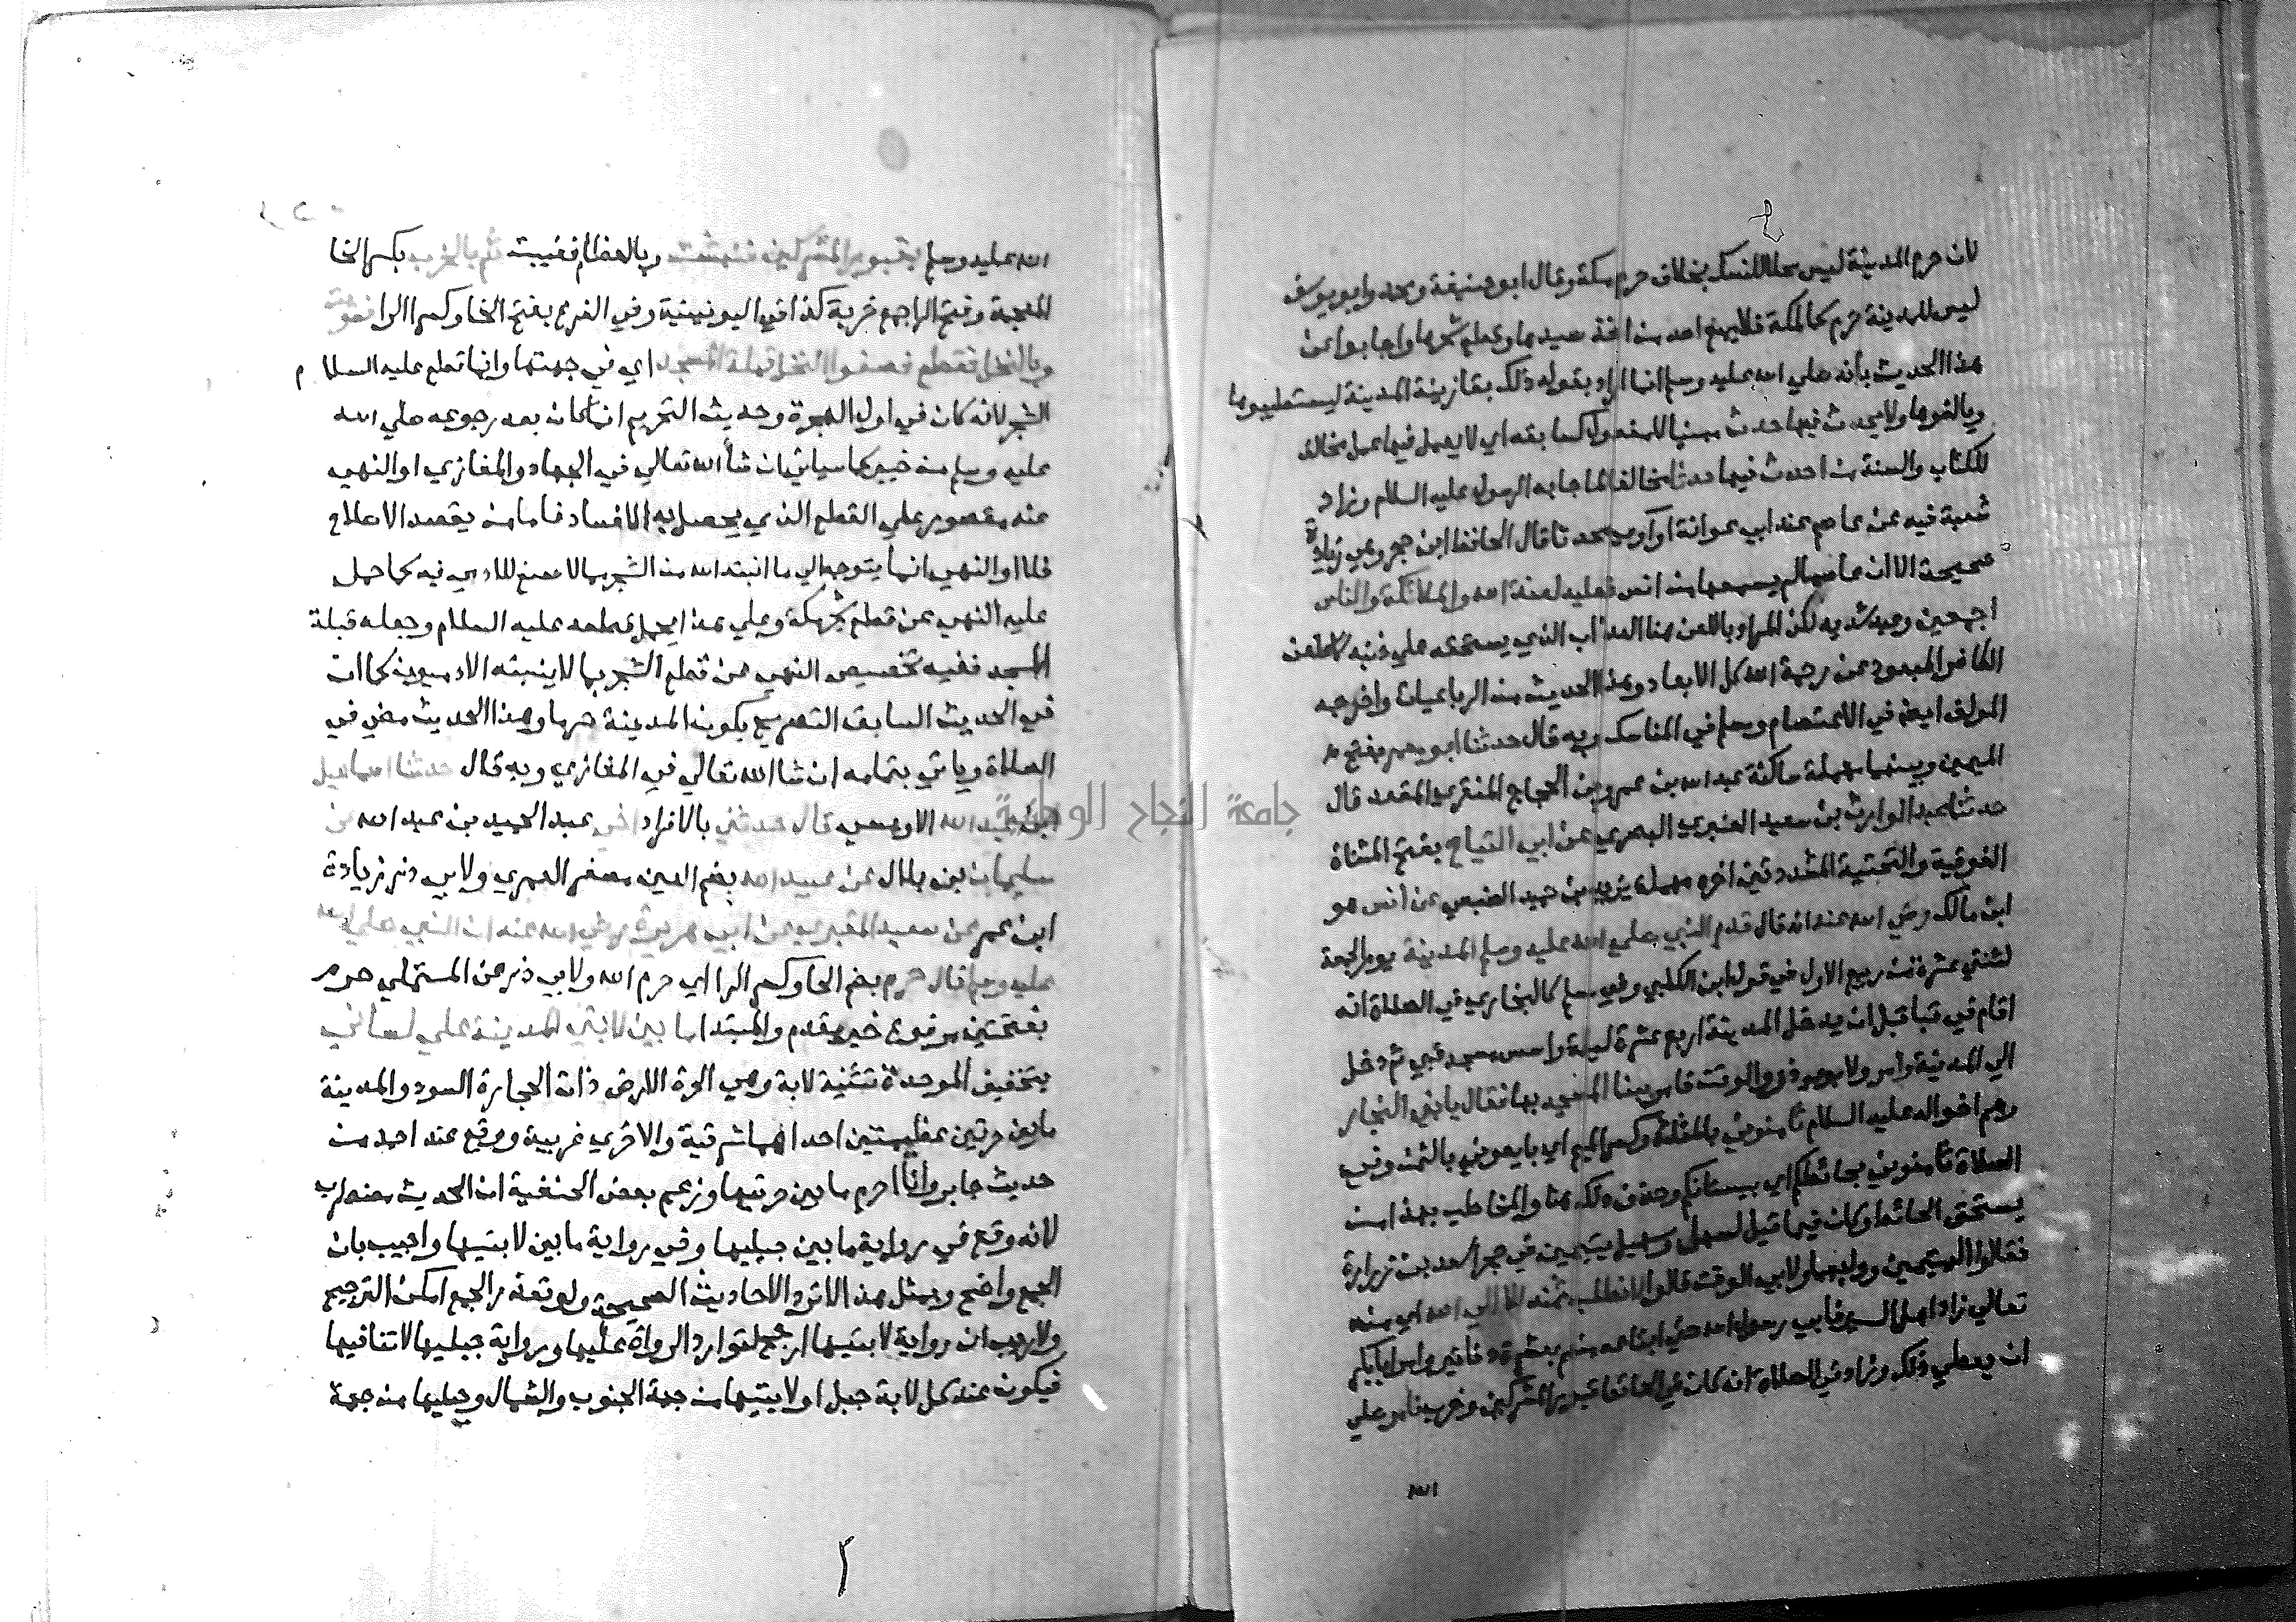 لان حرم المدينة ليس محلا للنسك بخلاف حرم مكة وقال ابو حنيفة ومحمد وابو يوسف
ليس للمدينة حرم كما لمكة فلا يمنع احد من اخذ صيدها وقطع شجرها واجابوا عن
هذا الحديث بأنه صلي الله عليه وسلم انما اراد بقوله ذلك بقا زينة المدينة ليستطيبوها
ويالفوها ولا يحدث فيها حدث مبنيا للمفعول كسابقه اي لا يعمل فيها عمل مخالف
للكتاب والسنة من احدث فيها حدثا مخالفا لما جا به الرسول عليه السلام وزاد
شعبة فيه عن عاصم عند ابي عوانة او آوي محدثا قال الحافظ ابن حجر وهي زيادة
صحيحة الا ان عاصما لم يسمعها من انس فعليه لعنة الله والملائكة والناس
اجمعين وعيد شديد لكن المراد باللعن هنا العذاب الذي يستحقه علي ذنبه لا كلعن
الكافر المبعود عن رحمة الله كل الابعاد وهذا الحديث من الرباعيات واخرجه
المولف ايضا في الاعتصام ومسلم في المناسك وبه قال حدثنا ابو معمر بفتح
الميمين وبينهما مهملة ساكنة عبد الله بن عمرو بن الحجاج المنقري المقعد قال
حدثنا عبد الوارث بن سعيد العنبري البصري عن ابي التياح بفتح المثناة
الفوقية والتحتية المشددتين اخره مهملة يزيد بن حميد الضبعي عن انس هو
ابن مالك رضي الله عنه انه قال قدم النبي صلي الله عليه وسلم المدينة يوم الجمعة
لثنتي عشرة من ربيع الاول في قول ابن الكلبي وفي مسلم كالبخاري في الصلاة انه
اقام في قبا قبل ان يدخل المدينة اربع عشرة ليلة واسس مسجد قبي ثم دخل
الي المدينة وامر ولابوي ذر والوقت فامر ببنا المسجد بها فقال يا بني النجار
وهم اخواله عليه السلام ثامنوني بالمثلثة وكسر الميم اي بايعوني بالثمن وفي
الصلاة ثامنوني بحائطكم اي ببستانكم وحذف ذلك هنا والمخاطب بهذا من
يستحق الحائط وكان فيما قيل لسهل وسهيل يتيمين في حجر اسعد بن زرارة
فقالوا اليتيمين ووليهما ولابي الوقت قالوا لا نطلب ثمنه الا الي الله اي منه
تعالي زاد اهل السير فابي رسول الله حتي ابتاعه منهم بعشرة دنانير وامر ابابكر
ان يعطي ذلك وزاد في الصلاة انه كان في الحائط قبور المشركين وخرب فامر صلي
الله
الله عليه وسلم بقبور المشركين فنبشت وبالعظام فغيبت ثم بالخرب بكسر الخا
المعجمة وفتح الرا جمع خربة كذا في اليونينية وفي الفرع بفتح الخا وكسر الرا فسويت
وبالنخل فقطع فصفوا النخل قبلة المسجد اي في جهتها وانما قطع عليه السلام
الشجر لانه كان في اول الهجرة وحديث التحريم انما كان بعد رجوعه صلي الله
عليه وسلم من خيبر كما سياتي ان شاء الله تعالي في الجهاد والمغازي او النهي
عنه مقصور علي القطع الذي يحصل به الافساد فاما من يقصد الاصلاح
فلا او النهي انما يتوجه الي ما انبته الله من الشجر مما لا صنع للادمي فيه كما حمل
عليه النهي عن قطع شجر مكة وعلي هذا يحمل قطعه عليه السلام وجعله قبلة
المسجد ففيه تخصيص النهي عن قطع الشجر بما لا ينبته الادميون كما ان
في الحديث السابق التصريح بكون المدينة حرما وهذا الحديث مضي في
الصلاة وياتي بتمامه ان شا الله تعالي في المغازي وبه قال حدثنا اسماعيل
ابن عبد الله الاويسي قال حدثني بالافراد اخي عبد الحميد بن عبد الله عن
سليمان بن بلال عن عبيد الله بضم العين مصغر العمري ولابي ذر زيادة
ابن عمر عن سعيد المقبري عن ابي هريرة رضي الله عنه ان النبي صلي الله
عليه وسلم قال حرم بضم الحا وكسر الرا اي حرم الله ولابي ذر عن المستملي حرم
بفتحتين مرفوع خبر مقدم والمبتدا ما بين لابتي المدينة علي لساني
بتخفيف الموحدة تثنية لابة وهي الحرة الارض ذات الحجارة السود والمدينة
ما بين حرتين عظيمتين احداهما شرقية والاخري غربية ووقع عند احمد من
حديث جابر وانا احرم ما بين حرتيها وزعم بعض الحنفية ان الحديث مضطرب
لانه وقع في رواية ما بين جبليها وفي رواية ما بين لابتيها واجيب بان
الجمع واضح وبمثل هذا لا ترد الاحاديث الصحيحة ولو تعذر الجمع امكن الترجيح
ولا ريب ان رواية لابتيها ارجح لتوارد الرواة عليها ورواية جبليها لا تنافيها
فيكون عند كل لابة جبل او لابتيها من جهة الجنوب والشمال وجبليها من جهة
جامعة النجاح الوطنية